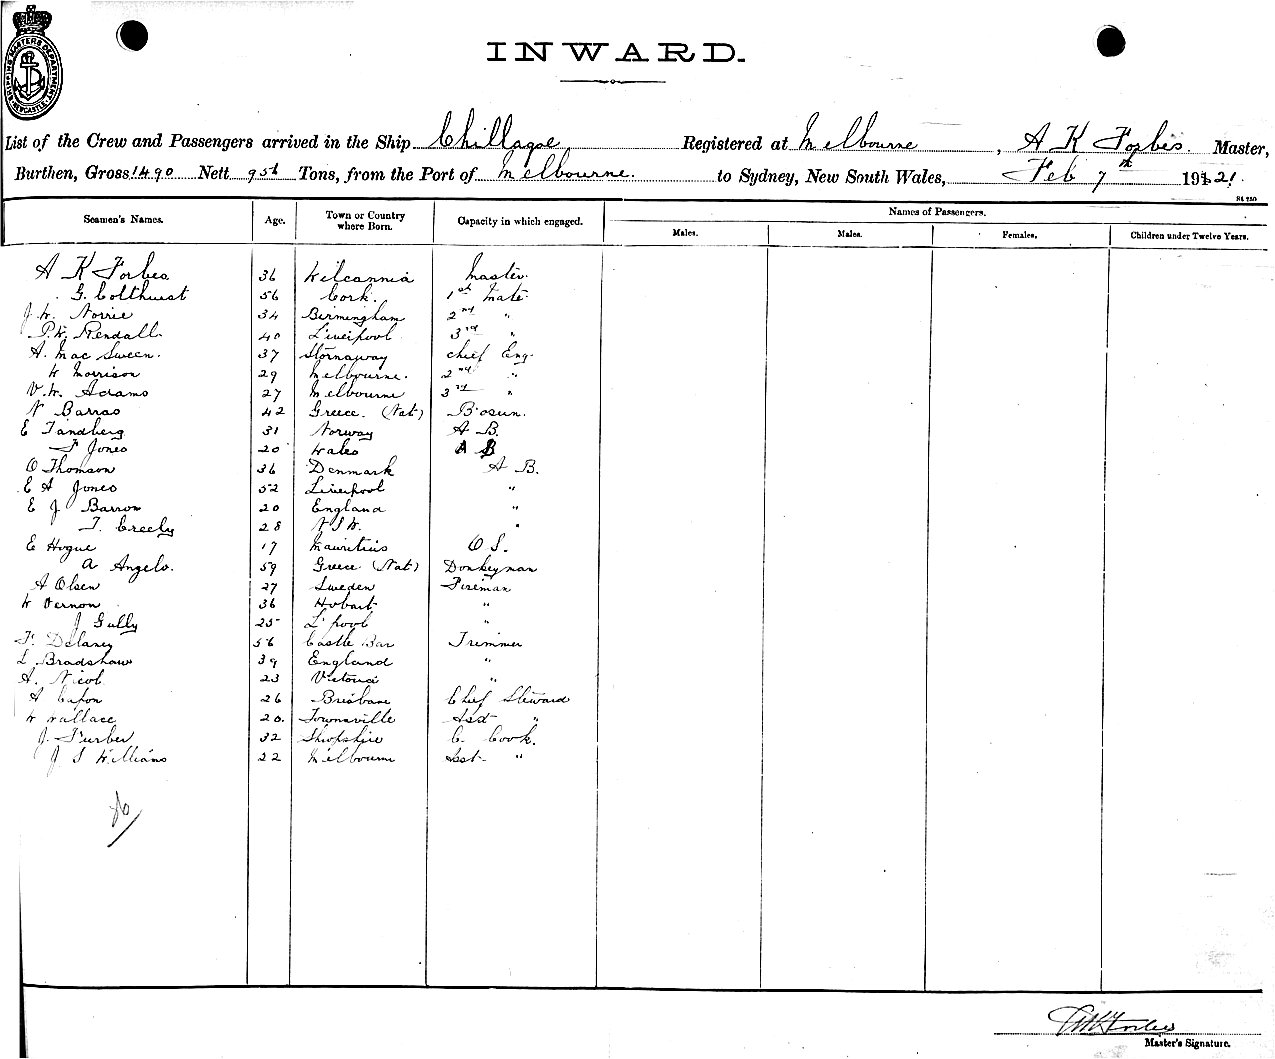 SHIPPING MASTERS DEPARTMENT NEWCASTLE
INWARD.
List of the Crew and Passengers arrived in the Ship Chillagoe Registered at Melbourne, A K Forbes Master,
Burthen, Gross 1490 Nett 951 Tons, from the Port of Melbourne. to Sydney, New South Wales, Feb 7th 1921.
Seamen's Names. Age. Town or Country where Born. Capacity in which engaged. Names of Passengers.
Males. Males. Females. Children under Twelve Years.
A K Forbes 36 Wilcannia Master
G. Colthurst 56 Cork. 1st Mate
J W. Norrie 34 Birmingham 2nd "
P. W. Rendall 40 Liverpool 3rd "
A. Mac Sween. 37 Stornaway chief Eng.
W Morrison 29 Melbourne. 2nd "
V. W. Adams 27 Melbourne 3rd "
N Barras 42 Greece. (Nat) Bosun.
E Tandberg 31 Norway A B.
T Jones 20 Wales A B
O Thomson 36 Denmark A B.
E A Jones 52 Liverpool "
E J Barron 20 England "
T. Creely 28 N S W. "
E Hogue 17 Mauritius O S.
A Angelo. 59 Greece (Nat) Donkeyman
A Olsen 27 Sweden Fireman
W Vernon 36 Hobart "
J Gully 25 L'pool "
F. Delaney 56 Castle Bar Trimmer
L Bradshaw 39 England "
A. Nicol 23 Victoria "
A Capon 26 Brisbane Chief Steward
W Wallace 20. Townsville Asst "
J. Furber 32 Shropshire C. Cook.
J S Williams 22 Melbourne Asst. "
A K Forbes
Master's Signature.